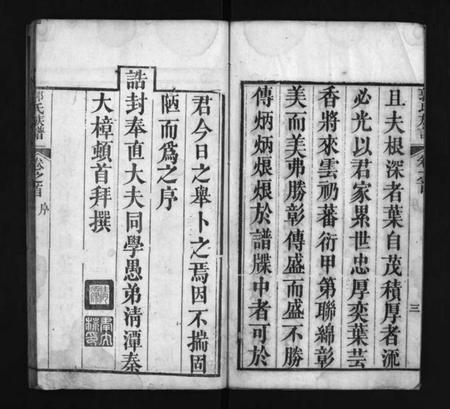 且夫根深者葉自茂積厚者流
必光以君家累世忠厚奕葉芸
香將來雲礽蕃衍甲第聯綿彰
美而美弗勝彰傳盛而盛不勝
傳炳炳烺烺於譜牒中者可於
三
君今日之舉卜之焉因不揣固
陋而爲之序
誥封奉直大夫同學愚弟清潭秦
大樟頓首拜撰
氏族譜
卷之首
序